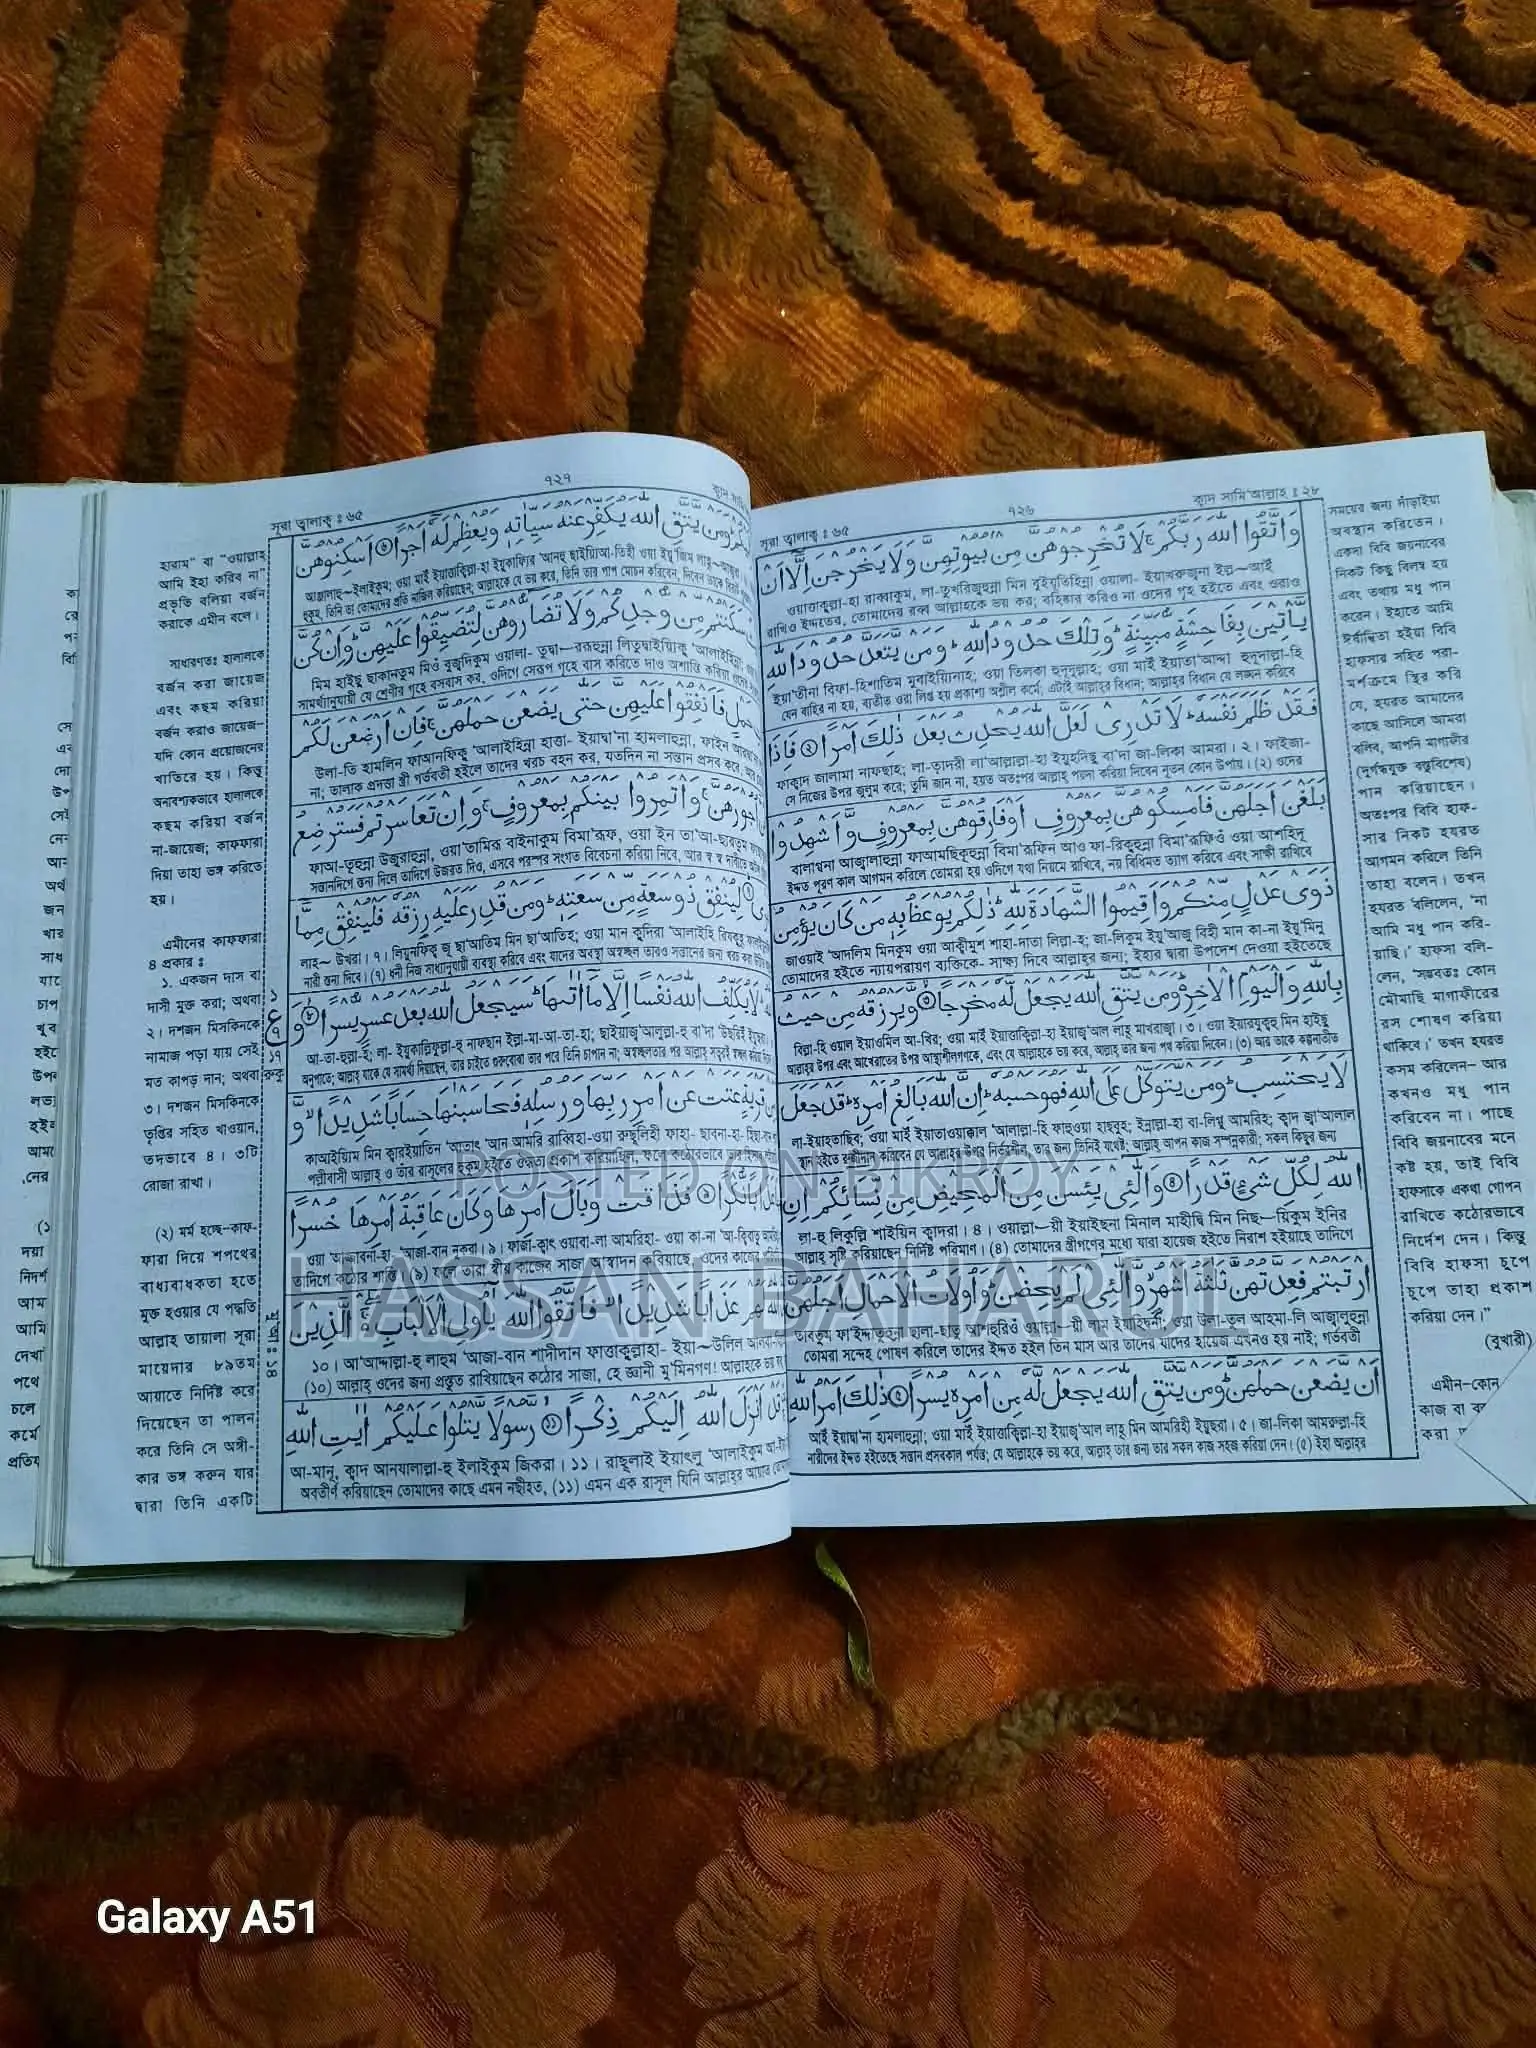 ৭২৬
সূরা ত্বালাক্ব : ৬৫
ক্বাদ সামি'আল্লাহ : ২৮
وَاتَّقُوا اللّٰهَ رَبَّكُمْ ۚ لَا تُخْرِجُوْهُنَّ مِنْۢ بُيُوْتِهِنَّ وَلَا يَخْرُجْنَ اِلَّآ اَنْ
ওয়াত্তাকুল্লা-হা রাব্বাকুম, লা-তুখরিজূহুন্না মিম বুইয়ূতিহিন্না ওয়ালা- ইয়াখরুজনা ইল্লা~আই
রাখিও ইদ্দতের, তোমাদের রব্ব আল্লাহকে ভয় কর; বহিষ্কার করিও না ওদের গৃহ হইতে এবং ওরাও
يَّاْتِيْنَ بِفَاحِشَةٍ مُّبَيِّنَةٍ ؕ وَتِلْكَ حُدُوْدُ اللّٰهِ ؕ وَمَنْ يَّتَعَدَّ حُدُوْدَ اللّٰهِ
ইয়া'তীনা বিফা-হিশাতিম মুবাইয়্যিনাহ; ওয়া তিলকা হুদূদুল্লাহ; ওয়া মাই ইয়াতা'আদ্দা হুদূদাল্লা-হি
যেন বাহির না হয়, ব্যতীত ওরা লিপ্ত হয় প্রকাশ্য অশ্লীল কর্মে; এটাই আল্লাহর বিধান; আল্লাহর বিধান যে লঙ্ঘন করিবে
فَقَدْ ظَلَمَ نَفْسَهٗ ؕ لَا تَدْرِىْ لَعَلَّ اللّٰهَ يُحْدِثُ بَعْدَ ذٰلِكَ اَمْرًا ۝ فَاِذَا
ফাক্বাদ জালামা নাফছাহ; লা-তাদরী লা'আল্লাল্লা-হা ইয়ুহদিছু বা'দা জা-লিকা আমরা। ২। ফাইজা-
সে নিজের উপর জুলুম করে; তুমি জান না, হয়ত অতঃপর আল্লাহ পয়দা করিয়া দিবেন নূতন কোন উপায়। (২) ওদের
بَلَغْنَ اَجَلَهُنَّ فَاَمْسِكُوْهُنَّ بِمَعْرُوْفٍ اَوْ فَارِقُوْهُنَّ بِمَعْرُوْفٍ وَّاَشْهِدُوْا
বালাগ্বনা আজ্বালাহুন্না ফাআমছিকূহুন্না বিমা'রূফিন আও ফা-রিকূহুন্না বিমা'রূফিওঁ ওয়া আশহিদূ
ইদ্দত পূরণ কাল আগমন করিলে তোমরা হয় ওদিগে যথা নিয়মে রাখিবে, নয় বিধিমত ত্যাগ করিবে এবং সাক্ষী রাখিবে
ذَوَىْ عَدْلٍ مِّنْكُمْ وَاَقِيْمُوا الشَّهَادَةَ لِلّٰهِ ؕ ذٰلِكُمْ يُوْعَظُ بِهٖ مَنْ كَانَ يُؤْمِنُ
জাওয়াই 'আদলিম মিনকুম ওয়া আক্বীমুশ শাহা-দাতা লিল্লা-হ; জা-লিকুম ইয়ূ'আজু বিহী মান কা-না ইয়ু'মিনু
তোমাদের হইতে ন্যায়পরায়ণ ব্যক্তিকে- সাক্ষ্য দিবে আল্লাহর জন্য; ইহার দ্বারা উপদেশ দেওয়া হইতেছে
بِاللّٰهِ وَالْيَوْمِ الْاٰخِرِ ؕ وَمَنْ يَّتَّقِ اللّٰهَ يَجْعَلْ لَّهٗ مَخْرَجًا ۝ وَّيَرْزُقْهُ مِنْ حَيْثُ
বিল্লা-হি ওয়াল ইয়াওমিল আ-খির; ওয়া মাই ইয়াত্তাকিল্লা-হা ইয়াজ্ব'আল লাহূ মাখরাজ্বা। ৩। ওয়া ইয়ারযুক্বহু মিন হাইছু
আল্লাহর উপর এবং আখেরাতের উপর আস্থাশীলগণকে, এবং যে আল্লাহকে ভয় করে, আল্লাহ তার জন্য পথ করিয়া দিবেন। (৩) আর তাকে কল্পনাতীত
لَا يَحْتَسِبُ ؕ وَمَنْ يَّتَوَكَّلْ عَلَى اللّٰهِ فَهُوَ حَسْبُهٗ ؕ اِنَّ اللّٰهَ بَالِغُ اَمْرِهٖ ؕ قَدْ جَعَلَ
লা-ইয়াহতাছিব; ওয়া মাই ইয়াতাওয়াক্কাল 'আলাল্লা-হি ফাহুওয়া হাছবুহ; ইন্নাল্লা-হা বা-লিগু আমরিহ; ক্বাদ জ্বা'আলাল
স্থান হইতে রুজীদান করিবেন যে আল্লাহর উপর নির্ভরশীল, তার জন্য তিনিই যথেষ্ট; আল্লাহ আপন কাজ সম্পন্নকারী; সকল কিছুর জন্য
اللّٰهُ لِكُلِّ شَىْءٍ قَدْرًا ۝ وَالّٰٓـئِىْ يَئِسْنَ مِنَ الْمَحِيْضِ مِنْ نِّسَآئِكُمْ اِنِ
লা-হু লিকুল্লি শাইয়িন ক্বাদরা। ৪। ওয়াল্লা—য়ী ইয়াইছনা মিনাল মাহীদ্বি মিন নিছ—য়িকুম ইনির
আল্লাহ সৃষ্টি করিয়াছেন নির্দিষ্ট পরিমাণ। (৪) তোমাদের স্ত্রীগণের মধ্যে যারা হায়েজ হইতে নিরাশ হইয়াছে তাদিগে
ارْتَبْتُمْ فَعِدَّتُهُنَّ ثَلٰثَةُ اَشْهُرٍ وَّالّٰٓـئِىْ لَمْ يَحِضْنَ ؕ وَاُولَاتُ الْاَحْمَالِ اَجَلُهُنَّ
তাবতুম ফা'ইদ্দাতুহুন্না ছালা-ছাতু আশহুরিওঁ ওয়াল্লা—য়ী লাম ইয়াহিদ্বনা; ওয়া উলা-তুল আহমা-লি আজ্বালুহুন্না
তোমরা সন্দেহ পোষণ করিলে তাদের ইদ্দত হইল তিন মাস আর তাদের যাদের হায়েজ এখনও হয় নাই; গর্ভবতী
اَنْ يَّضَعْنَ حَمْلَهُنَّ ؕ وَمَنْ يَّتَّقِ اللّٰهَ يَجْعَلْ لَّهٗ مِنْ اَمْرِهٖ يُسْرًا ۝ ذٰلِكَ اَمْرُ اللّٰهِ
আই ইয়াদ্বা'না হামলাহুন্না; ওয়া মাই ইয়াত্তাকিল্লা-হা ইয়াজ্ব'আল লাহূ মিন আমরিহী ইয়ুছরা। ৫। জা-লিকা আমরুল্লা-হি
নারীদের ইদ্দত হইতেছে সন্তান প্রসবকাল পর্যন্ত; যে আল্লাহকে ভয় করে, আল্লাহ তার জন্য তার সকল কাজ সহজ করিয়া দেন। (৫) ইহা আল্লাহর
সময়ের জন্য দাঁড়াইয়া
অবস্থান করিতেন।
একদা বিবি জয়নাবের
নিকট কিছু বিলম্ব হয়
এবং তথায় মধু পান
করেন। ইহাতে আমি
ঈর্ষান্বিতা হইয়া বিবি
হাফসার সহিত পরা-
মর্শক্রমে স্থির করি
যে, হযরত আমাদের
কাছে আসিলে আমরা
বলিব, আপনি মাগাফীর
(দুর্গন্ধযুক্ত বস্তুবিশেষ)
পান করিয়াছেন।
অতঃপর বিবি হাফ-
সার নিকট হযরত
আগমন করিলে তিনি
তাহা বলেন। তখন
হযরত বলিলেন, 'না
আমি মধু পান করি-
য়াছি।' হাফসা বলি-
লেন, 'সম্ভবতঃ কোন
মৌমাছি মাগাফীরের
রস শোষণ করিয়া
থাকিবে।' তখন হযরত
কসম করিলেন– আর
কখনও মধু পান
করিবেন না। পাছে
বিবি জয়নাবের মনে
কষ্ট হয়, তাই বিবি
হাফসাকে একথা গোপন
রাখিতে কঠোরভাবে
নির্দেশ দেন। কিন্তু
বিবি হাফসা চুপে
চুপে তাহা প্রকাশ
করিয়া দেন।"
(বুখারী)
এমীন–কোন
কাজ বা
করা
৭২৭
সূরা ত্বালাক্ব : ৬৫
ক্বাদ সামি
وَمَنْ يَّتَّقِ اللّٰهَ يُكَفِّرْ عَنْهُ سَيِّاٰتِهٖ وَيُعْظِمْ لَهٗٓ اَجْرًا ۝ اَسْكِنُوْهُنَّ
আঞ্জালাহূ~ইলাইকুম; ওয়া মাই ইয়াত্তাকিল্লা-হা ইয়ুকাফফির 'আনহু ছাইয়িআ-তিহী ওয়া ইয়ু'জিম লাহূ~
হুকুম, তিনি তা তোমাদের প্রতি নাজিল করিয়াছেন; আল্লাহকে যে ভয় করে, তিনি তার পাপ মোচন করিবেন, দিবেন তাকে
سَكَنْتُمْ مِّنْ وُّجْدِكُمْ وَلَا تُضَآرُّوْهُنَّ لِتُضَيِّقُوْا عَلَيْهِنَّ ؕ وَاِنْ كُنَّ
মিন হাইছু ছাকানতুম মিওঁ বুজ্বদিকুম ওয়ালা- তুদ্বা—ররূহুন্না লিতুদ্বাইয়্যিকূ 'আলাইহিন্না;
সামর্থ্যানুযায়ী যে শ্রেণীর গৃহে বসবাস কর, ওদিগে সেরূপ গৃহে বাস করিতে দাও অশান্তি করিয়া
حَمْلٍ فَاَنْفِقُوْا عَلَيْهِنَّ حَتّٰى يَضَعْنَ حَمْلَهُنَّ ۚ فَاِنْ اَرْضَعْنَ لَكُمْ
উলা-তি হামলিন ফাআনফিকূ 'আলাইহিন্না হাত্তা- ইয়াদ্বা'না হামলাহুন্না, ফাইন
না; তালাক প্রদত্তা স্ত্রী গর্ভবতী হইলে তাদের খরচ বহন কর, যতদিন না সন্তান প্রসব করে;
اُجُوْرَهُنَّ ۚ وَاْتَمِرُوْا بَيْنَكُمْ بِمَعْرُوْفٍ ۚ وَاِنْ تَعَاسَرْتُمْ فَسَتُرْضِعُ
ফাআ-তূহুন্না উজূরাহুন্না, ওয়া'তামিরূ বাইনাকুম বিমা'রূফ, ওয়া ইন তা'আ-ছারতুম
সন্তানদিগে স্তন্য দিলে তাদিগে উজরত দিও, এসবে পরস্পর সংগত বিবেচনা করিয়া নিবে, আর স্ব স্ব দাবীতে
لِيُنْفِقْ ذُوْ سَعَةٍ مِّنْ سَعَتِهٖ ؕ وَمَنْ قُدِرَ عَلَيْهِ رِزْقُهٗ فَلْيُنْفِقْ مِمَّآ
লাহূ~ উখরা। ৭। লিয়ুনফিক জূ ছা'আতিম মিন ছা'আতিহ; ওয়া মান কুদিরা 'আলাইহি রিযকুহূ
নারী স্তন্য দিবে। (৭) ধনী নিজ সাধ্যানুযায়ী ব্যবস্থা করিবে এবং যাদের অবস্থা অস্বচ্ছল তারাও সন্তানের জন্য খরচ
لَا يُكَلِّفُ اللّٰهُ نَفْسًا اِلَّا مَآ اٰتٰىهَا ؕ سَيَجْعَلُ اللّٰهُ بَعْدَ عُسْرٍ يُّسْرًا ۝ وَ
আ-তা-হুল্লা-হ; লা- ইয়ুকাল্লিফুল্লা-হু নাফছান ইল্লা-মা-আ-তা-হা; ছাইয়াজ্ব'আলুল্লা-হু বা'দা 'উছরিই
অনুপাতে; আল্লাহ যাকে যে সামর্থ্য দিয়াছেন, তার চাইতে গুরুবোঝা তার পরে তিনি চাপান না; অস্বচ্ছলতার পর আল্লাহ সত্বরই
قَرْيَةٍ عَتَتْ عَنْ اَمْرِ رَبِّهَا وَرُسُلِهٖ فَحَاسَبْنٰهَا حِسَابًا شَدِيْدًا ۙ وَّ
কাআইয়্যিম মিন ক্বারইয়াতিন 'আতাৎ 'আন আমরি রাব্বিহা-ওয়া রুছুলিহী ফাহা- ছাবনা-হা-
পল্লীবাসী আল্লাহ ও তাঁর রাসূলের হুকুম হইতে ঔদ্ধত্য প্রকাশ করিয়াছিল, ফলে কঠোরভাবে তার হিসাব
نُّكْرًا ۝ فَذَاقَتْ وَبَالَ اَمْرِهَا وَكَانَ عَاقِبَةُ اَمْرِهَا خُسْرًا
ওয়া 'আজ্জাবনা-হা- 'আজা-বান নুকরা। ৯। ফাজা-ক্বাৎ ওয়াবা-লা আমরিহা- ওয়া কা-না 'আ-ক্বিবাতু
তাদিগে কঠোর শাস্তি। (৯) ফলে তারা স্বীয় কাজের সাজা আস্বাদন করিয়াছে, ওদের কাজের
اللّٰهُ لَهُمْ عَذَابًا شَدِيْدًا ۙ فَاتَّقُوا اللّٰهَ يٰٓاُولِى الْاَلْبَابِ ۛۚ الَّذِيْنَ
১০। আ'আদ্দাল্লা-হু লাহুম 'আজা-বান শাদীদান ফাত্তাকুল্লাহা- ইয়া~উলিল
(১০) আল্লাহ ওদের জন্য প্রস্তুত রাখিয়াছেন কঠোর সাজা, হে জ্ঞানী মু'মিনগণ! আল্লাহকে ভয়
قَدْ اَنْزَلَ اللّٰهُ اِلَيْكُمْ ذِكْرًا ۝ رَّسُوْلًا يَّتْلُوْا عَلَيْكُمْ اٰيٰتِ اللّٰهِ
আ-মানূ, ক্বাদ আনযালাল্লা-হু ইলাইকুম জিকরা। ১১। রাছূলাই ইয়াৎলূ 'আলাইকুম
অবতীর্ণ করিয়াছেন তোমাদের কাছে এমন নছীহত, (১১) এমন এক রাসূল যিনি আল্লাহর আয়াত
হারাম" বা "ওয়াল্লাহ
আমি ইহা করিব না"
প্রভৃতি বলিয়া বর্জন
করাকে এমীন বলে।
সাধারণতঃ হালালকে
বর্জন করা জায়েজ
এবং কছম করিয়া
বর্জন করাও জায়েজ–
যদি কোন প্রয়োজনের
খাতিরে হয়। কিন্তু
অনাবশ্যকভাবে হালালকে
কছম করিয়া বর্জন
না-জায়েজ; কাফফারা
দিয়া তাহা ভঙ্গ করিতে
হয়।
এমীনের কাফফারা
৪ প্রকার :
১. একজন দাস বা
দাসী মুক্ত করা; অথবা
২। দশজন মিসকিনকে
নামাজ পড়া যায় সেই
মত কাপড় দান; অথবা
৩। দশজন মিসকিনকে
তৃপ্তির সহিত খাওয়ান,
তদভাবে ৪। ৩টি
রোজা রাখা।
(২) মর্ম হচ্ছে–কাফ-
ফারা দিয়ে শপথের
বাধ্যবাধকতা হতে
মুক্ত হওয়ার যে পদ্ধতি
আল্লাহ তায়ালা সূরা
মায়েদার ৮৯তম
আয়াতে নির্দিষ্ট করে
দিয়েছেন তা পালন
করে তিনি সে অঙ্গী-
কার ভঙ্গ করুন যার
দ্বারা তিনি একটি
১
ع
৭
১৭
রুকু
POSTED ON BIKROY
HASSAN BAHARUL
Galaxy A51